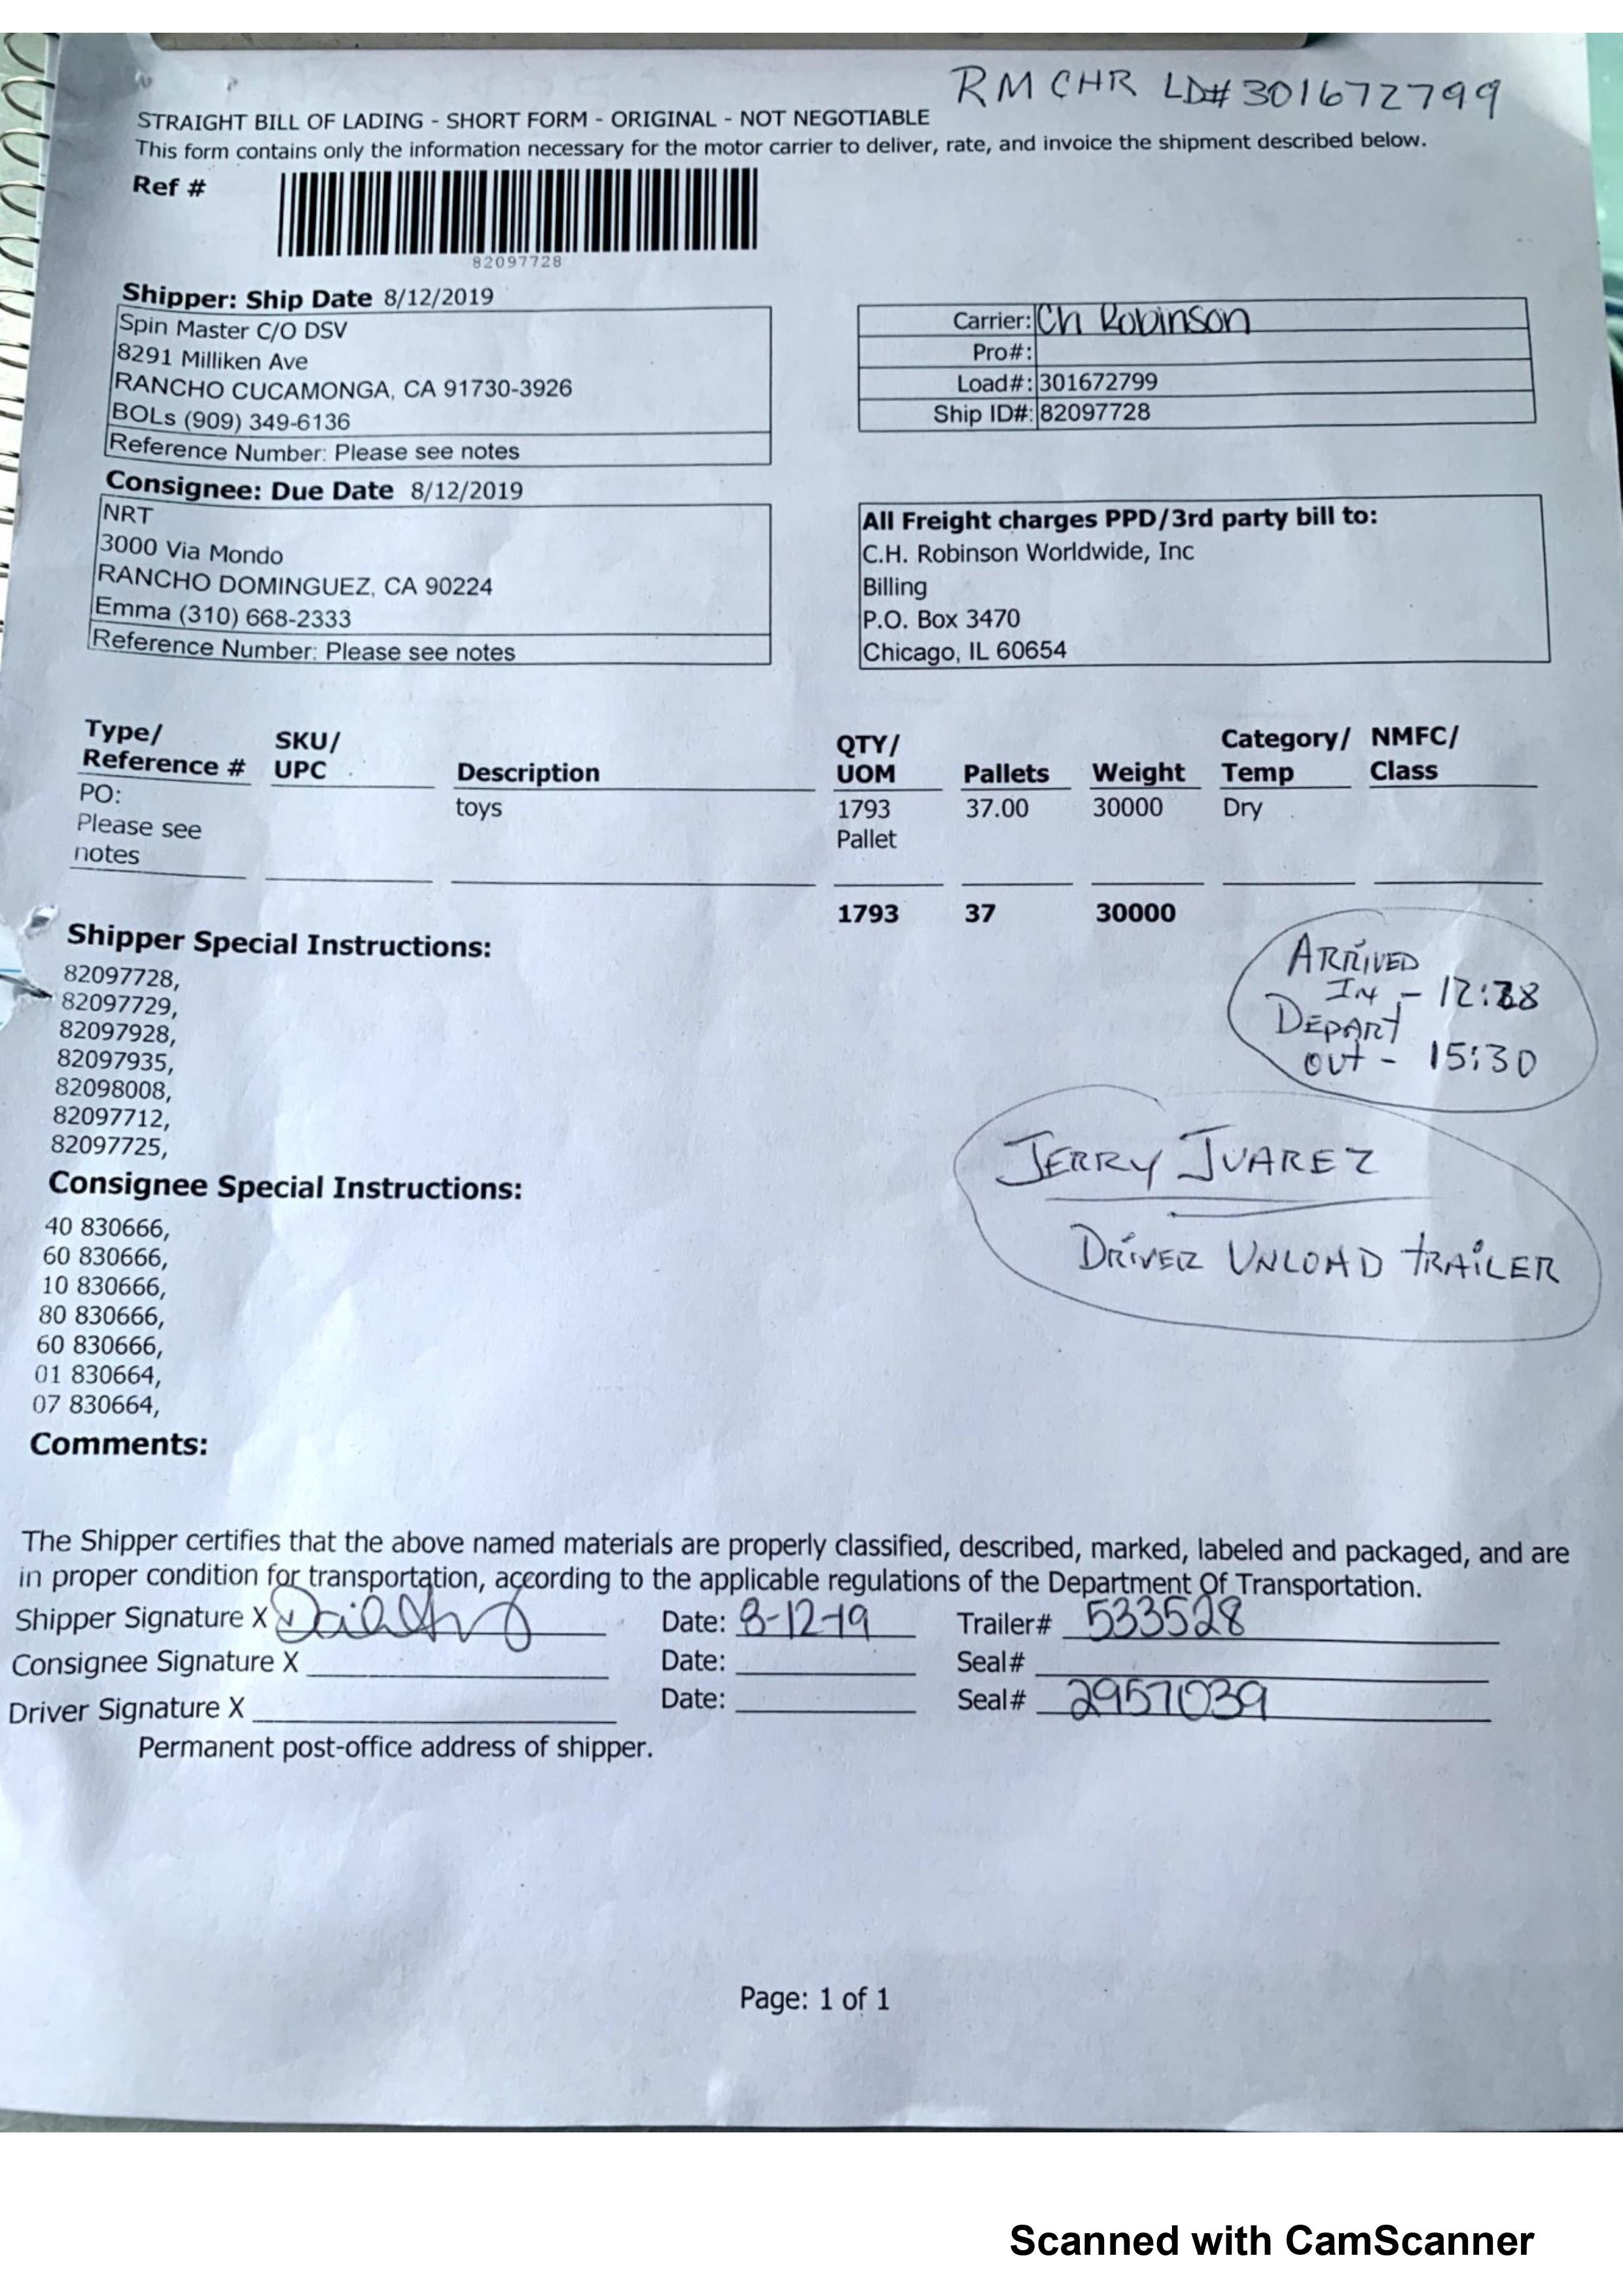 RM CHR LD# 301672799
STRAIGHT BILL OF LADING - SHORT FORM - ORIGINAL - NOT NEGOTIABLE
This form contains only the information necessary for the motor carrier to deliver, rate, and invoice the shipment described below.
Ref #
82097728
Shipper: Ship Date 8/12/2019
Spin Master C/O DSV
8291 Milliken Ave
RANCHO CUCAMONGA, CA 91730-3926
BOLs (909) 349-6136
Reference Number: Please see notes
Carrier: Ch Robinson
Pro#:
Load#: 301672799
Ship ID#: 82097728
Consignee: Due Date 8/12/2019
NRT
3000 Via Mondo
RANCHO DOMINGUEZ, CA 90224
Emma (310) 668-2333
Reference Number: Please see notes
All Freight charges PPD/3rd party bill to:
C.H. Robinson Worldwide, Inc
Billing
P.O. Box 3470
Chicago, IL 60654
Type/ Reference # SKU/ UPC Description QTY/ UOM Pallets Weight Category/ Temp NMFC/ Class
PO: Please see notes toys 1793 Pallet 37.00 30000 Dry
1793 37 30000
Shipper Special Instructions:
82097728,
82097729,
82097928,
82097935,
82098008,
82097712,
82097725,
ARRIVED
IN -
DEPART
OUT - 15:30
JERRY JUAREZ
DRIVER UNLOAD TRAILER
Consignee Special Instructions:
40 830666,
60 830666,
10 830666,
80 830666,
60 830666,
01 830664,
07 830664,
Comments:
The Shipper certifies that the above named materials are properly classified, described, marked, labeled and packaged, and are
in proper condition for transportation, according to the applicable regulations of the Department Of Transportation.
Shipper Signature X Date: 8-12-19 Trailer# 533528
Consignee Signature X Date: Seal#
Driver Signature X Date: Seal# 2957039
Permanent post-office address of shipper.
Page: 1 of 1
Scanned with CamScanner